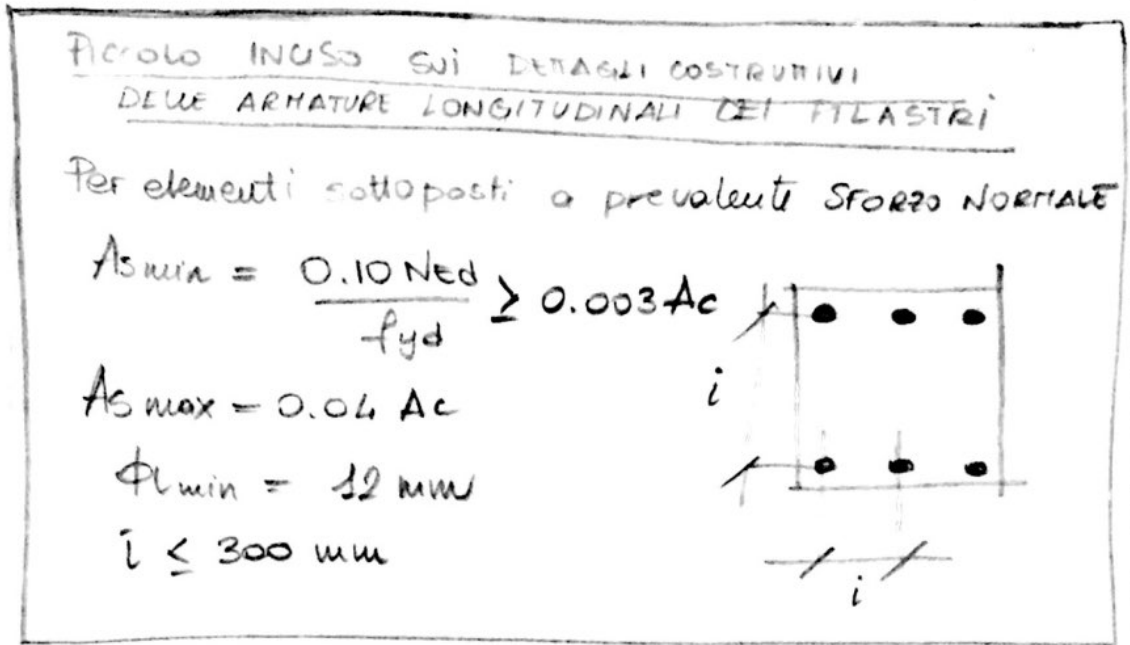 PICCOLO INCISO SUI DETTAGLI COSTRUTTIVI
DELLE ARMATURE LONGITUDINALI DEI PILASTRI
Per elementi sottoposti a prevalente SFORZO NORMALE
As min = 0.10 Ned / fyd ≥ 0.003 Ac
As max = 0.04 Ac
Φl min = 12 mm
i ≤ 300 mm
i
i